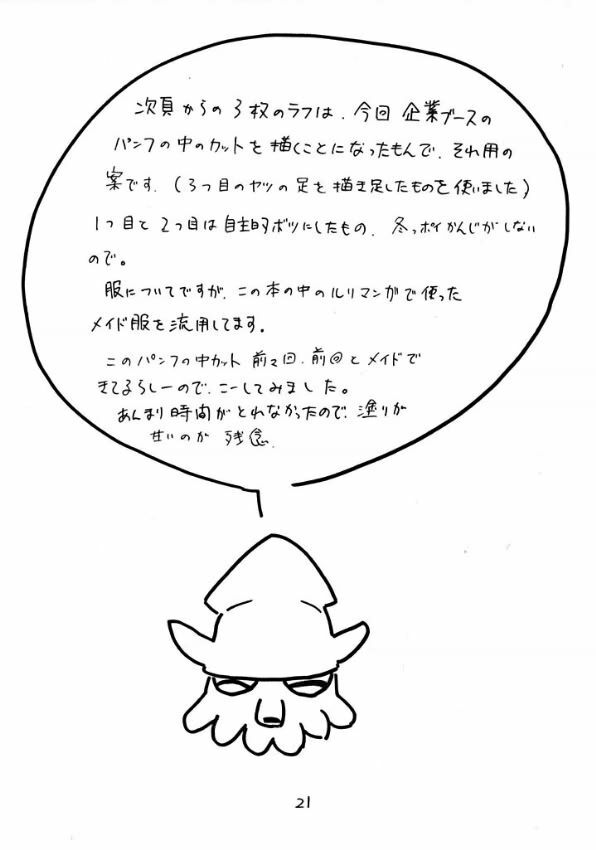 次頁からの3枚のラフは、今回企業ブースの
パンフの中のカットを描くことになったもんで、それ用の
案です。(3つ目のヤツの足を描き足したものを使いました)
1つ目と2つ目は自主的ボツにしたもの、冬っポイかんじがしない
ので。
服についてですが、この本の中のルリマンガで使った
メイド服を流用してます。
このパンフの中カット前々回、前回とメイドで
きてるらしーので、こーしてみました。
あんまり時間がとれなかったので、塗りが
甘いのが残念、
21